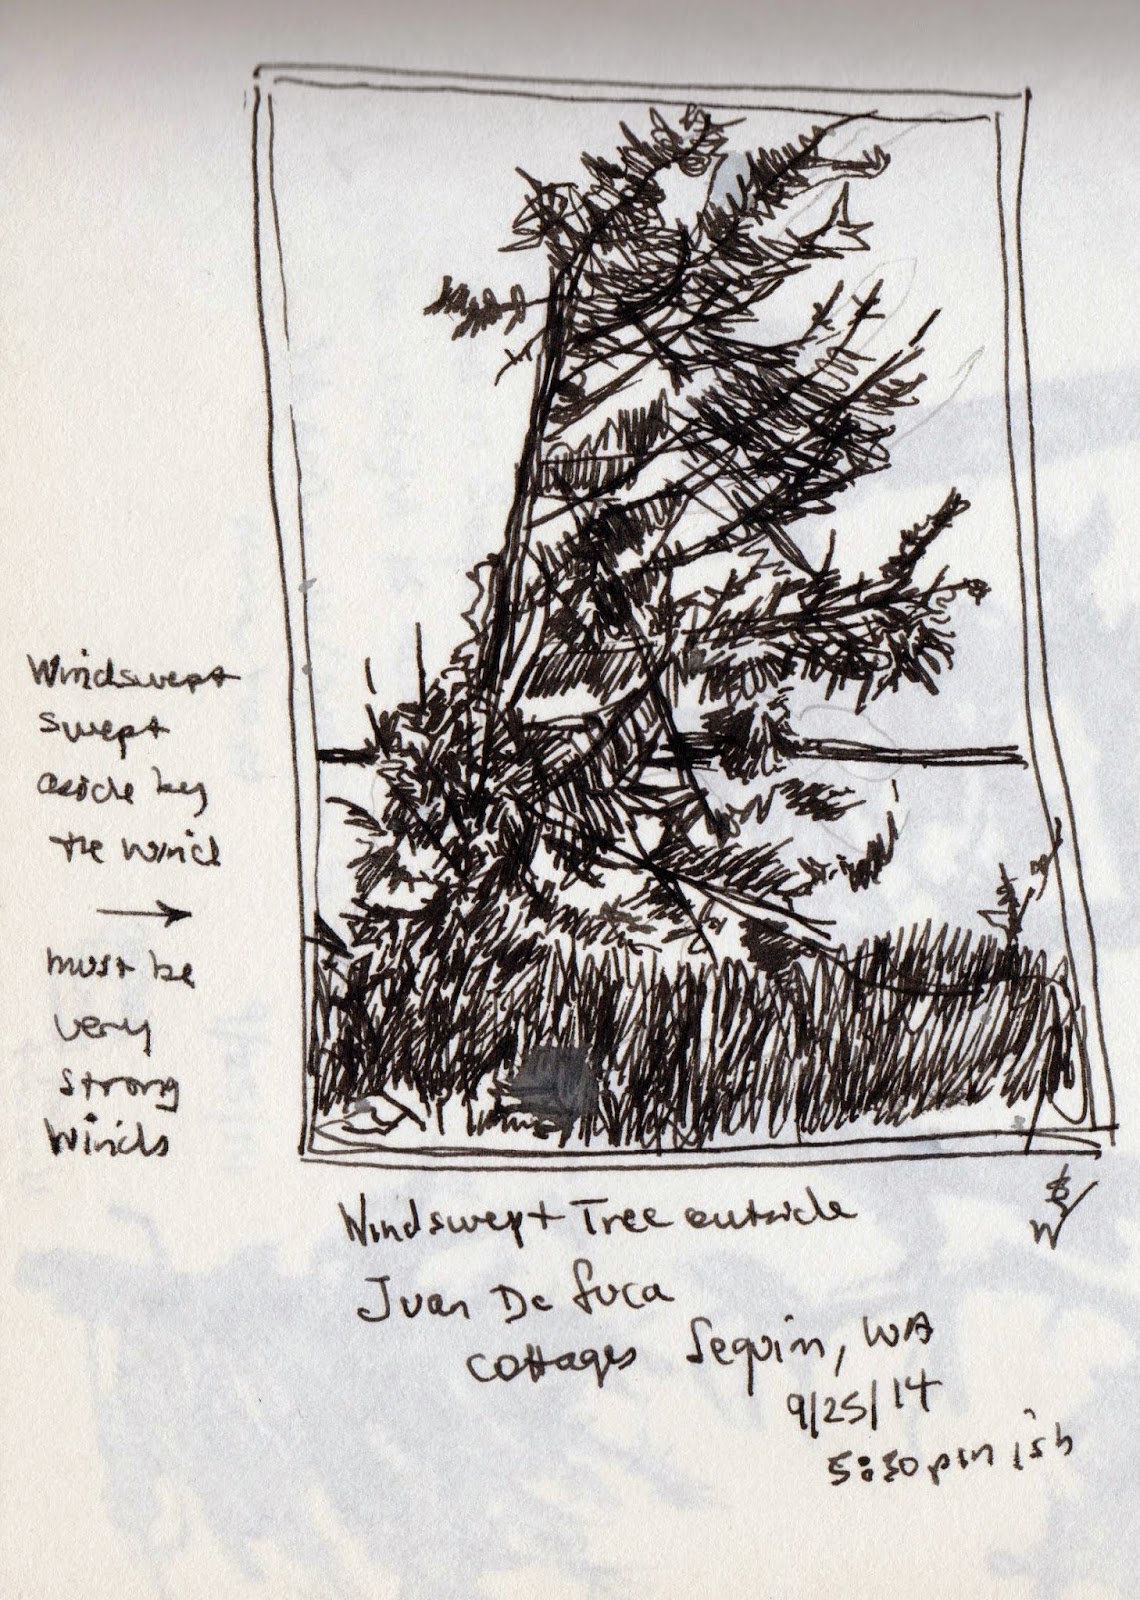 Windswept
swept
aside by
the wind
→
must be
very
strong
Winds
Windswept Tree outside
Juan De Fuca
Cottages Sequim, WA
9/25/14
5:30pm ish